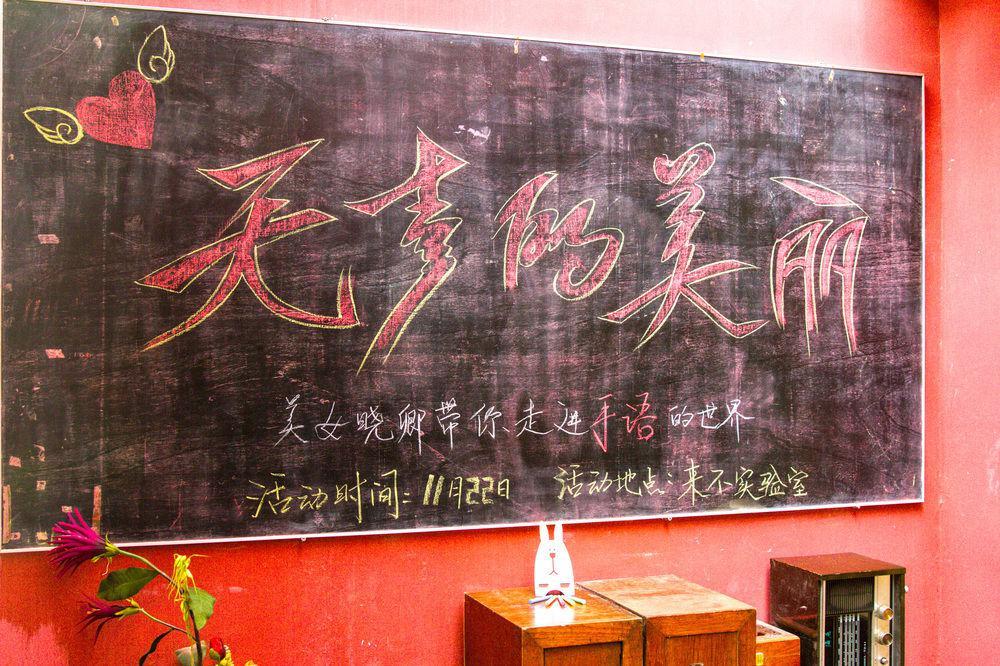 无声的美丽
美女晓卿带你走进手语的世界
活动时间：11月22日 活动地点：来不实验室